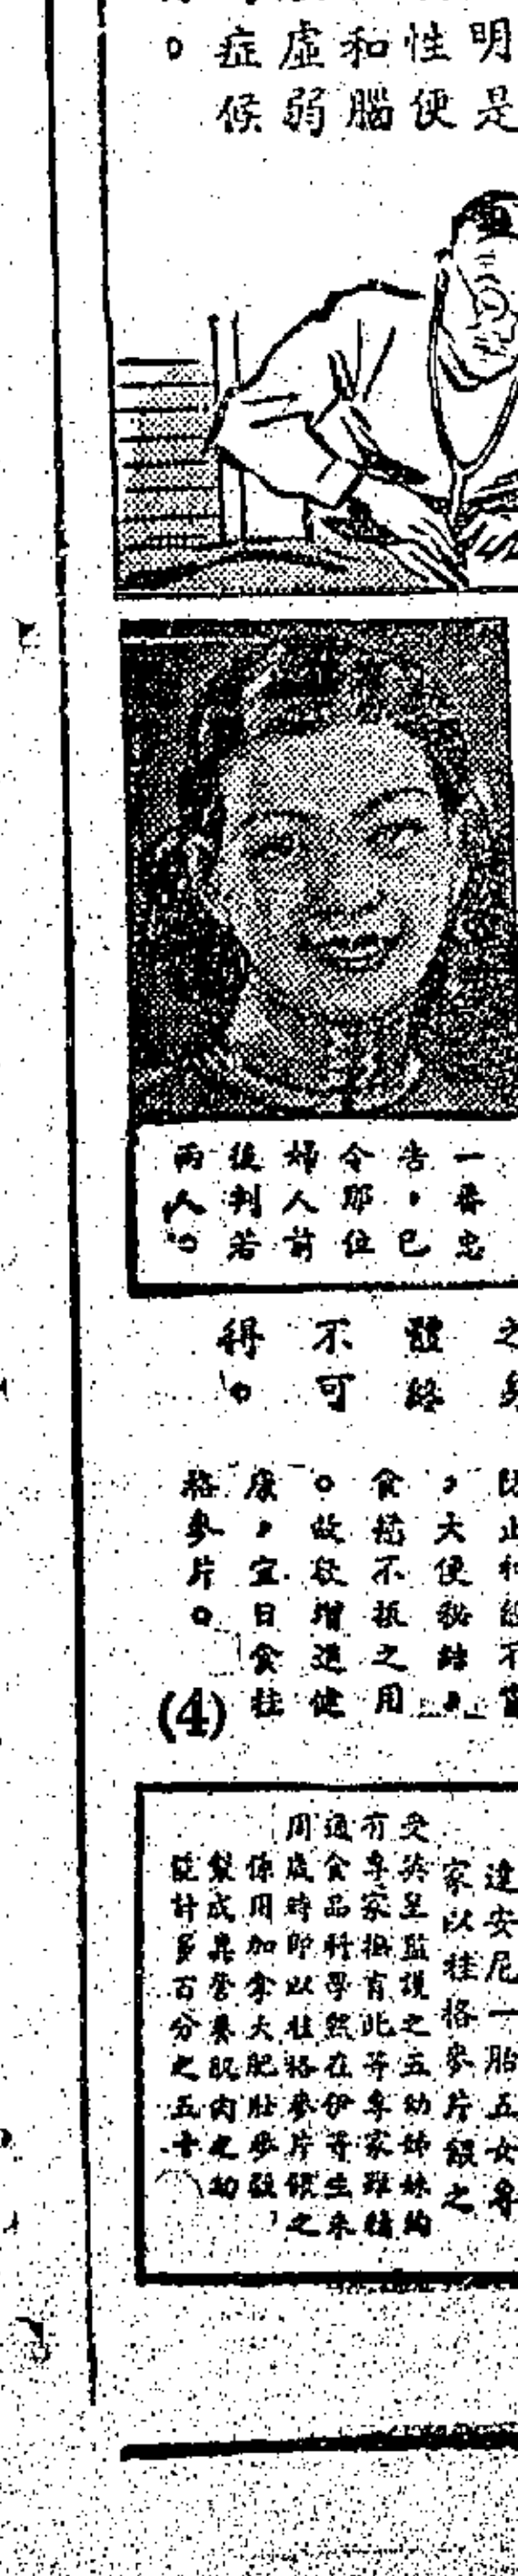 明是
性便
和腦
虛弱
症候
。
一番忠
告，已
令那位
婦人前
後判若
兩人。
之
體終
不可
得。
，大便秘結，
食慾不振之用
。故欲增進健
康，宜日食桂
格麥片。
(4)
達安尼一胎五女專
家以桂格麥片餵之
受英皇監護之五幼姊妹均
有專家撫育此等專家雖精
通食品科學然在伊等生來
周歲時即以桂格麥片餵之
係用加拿大肥壯麥穀
製成其營養肌肉之功
能計多百分之五十